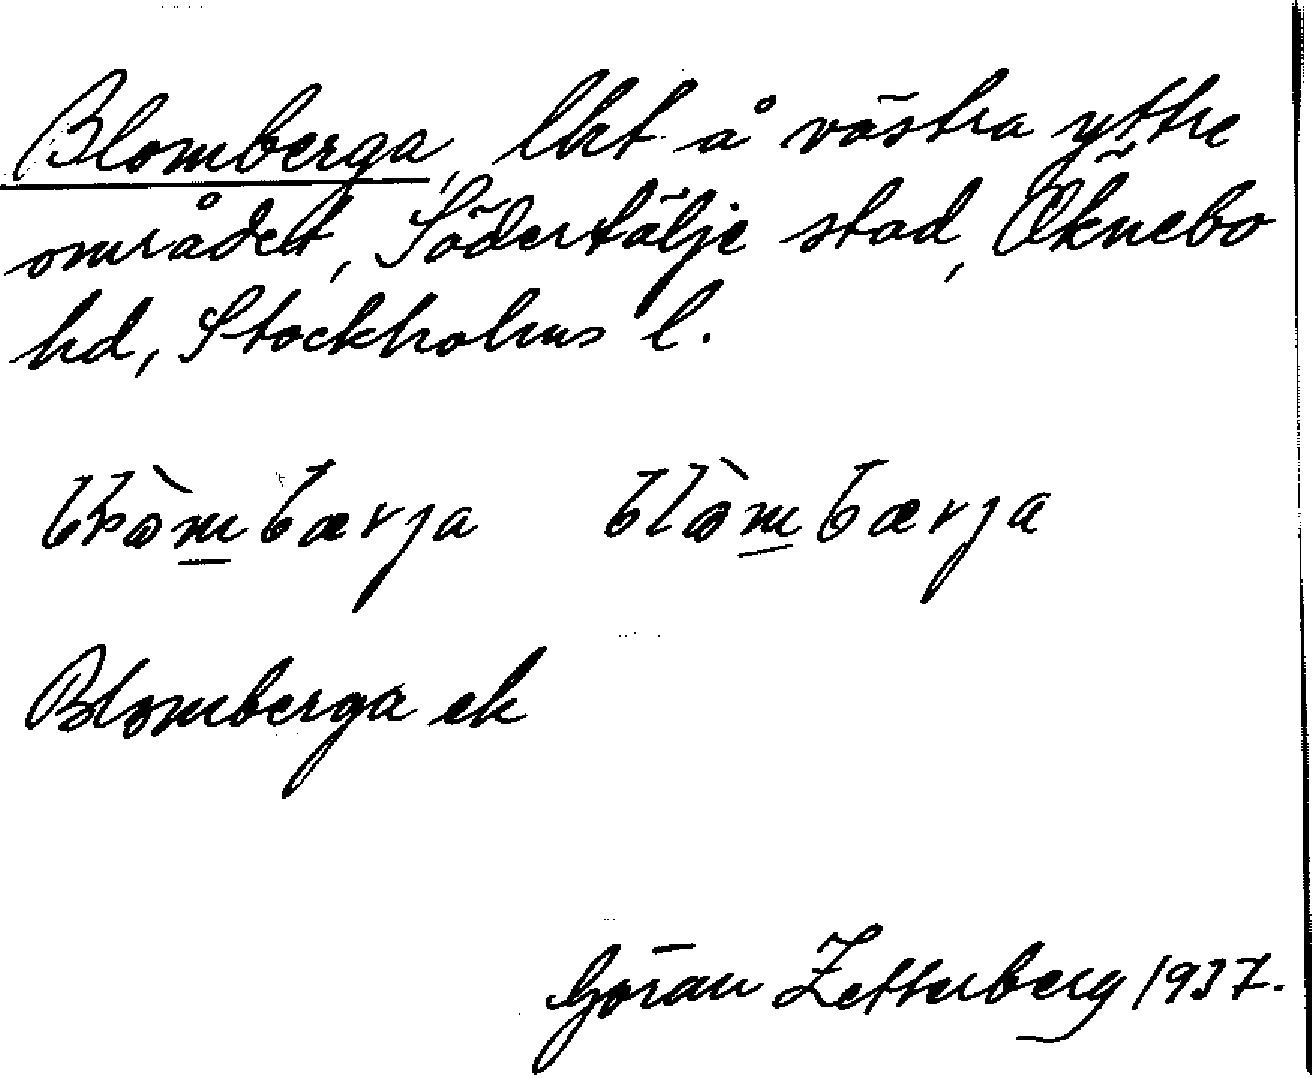 Blomberga, lht å västra yttre
området, Södertälje stad, Öknebo
hd, Stockholms l.
blòmbærja
Blomberga ek
Göran Zetterberg 1937.